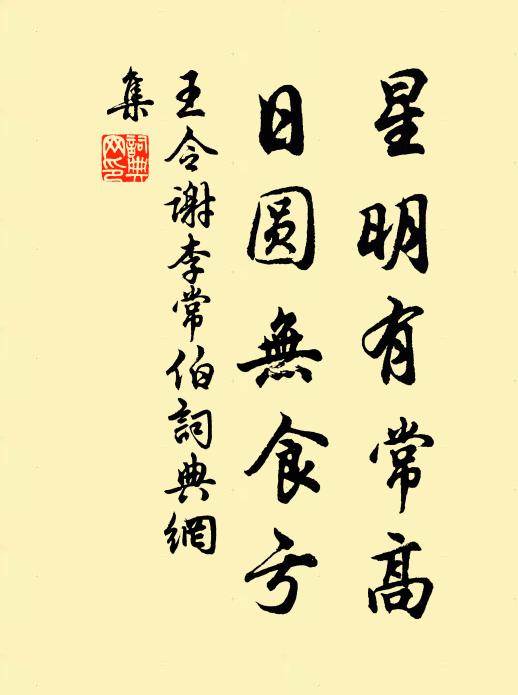 星明有常高
日圆無食亏
王令谢李常伯詞典網
集
詞典網印